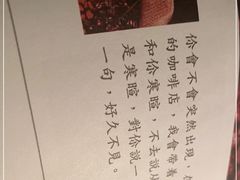 你會不會突然出現，
的咖啡店，我會帶着
和你寒暄，不去說
是寒暄，對你說一
句，好久不見。